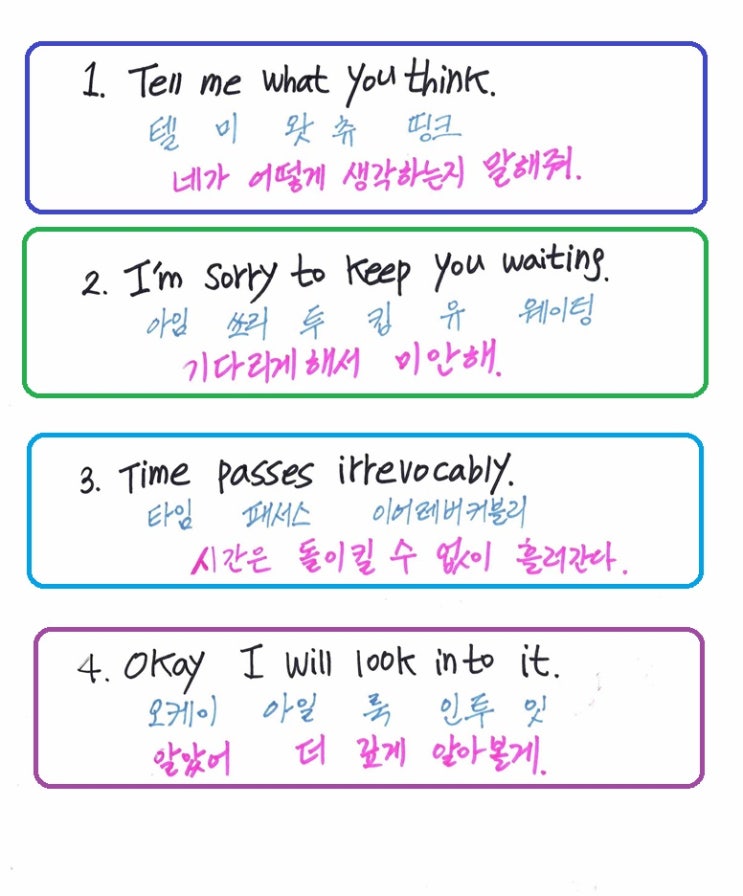 1. Tell me what you think.
텔 미 왓 츄 띵크
네가 어떻게 생각하는지 말해줘.
2. I'm sorry to keep you waiting.
아임 쏘리 투 킵 유 웨이팅
기다리게해서 미안해.
3. Time passes irrevocably.
타임 패서스 이어레버커블리
시간은 돌이킬 수 없이 흘러간다.
4. Okay I will look into it.
오케이 아일 룩 인투 잇
알았어 더 깊게 알아볼게.